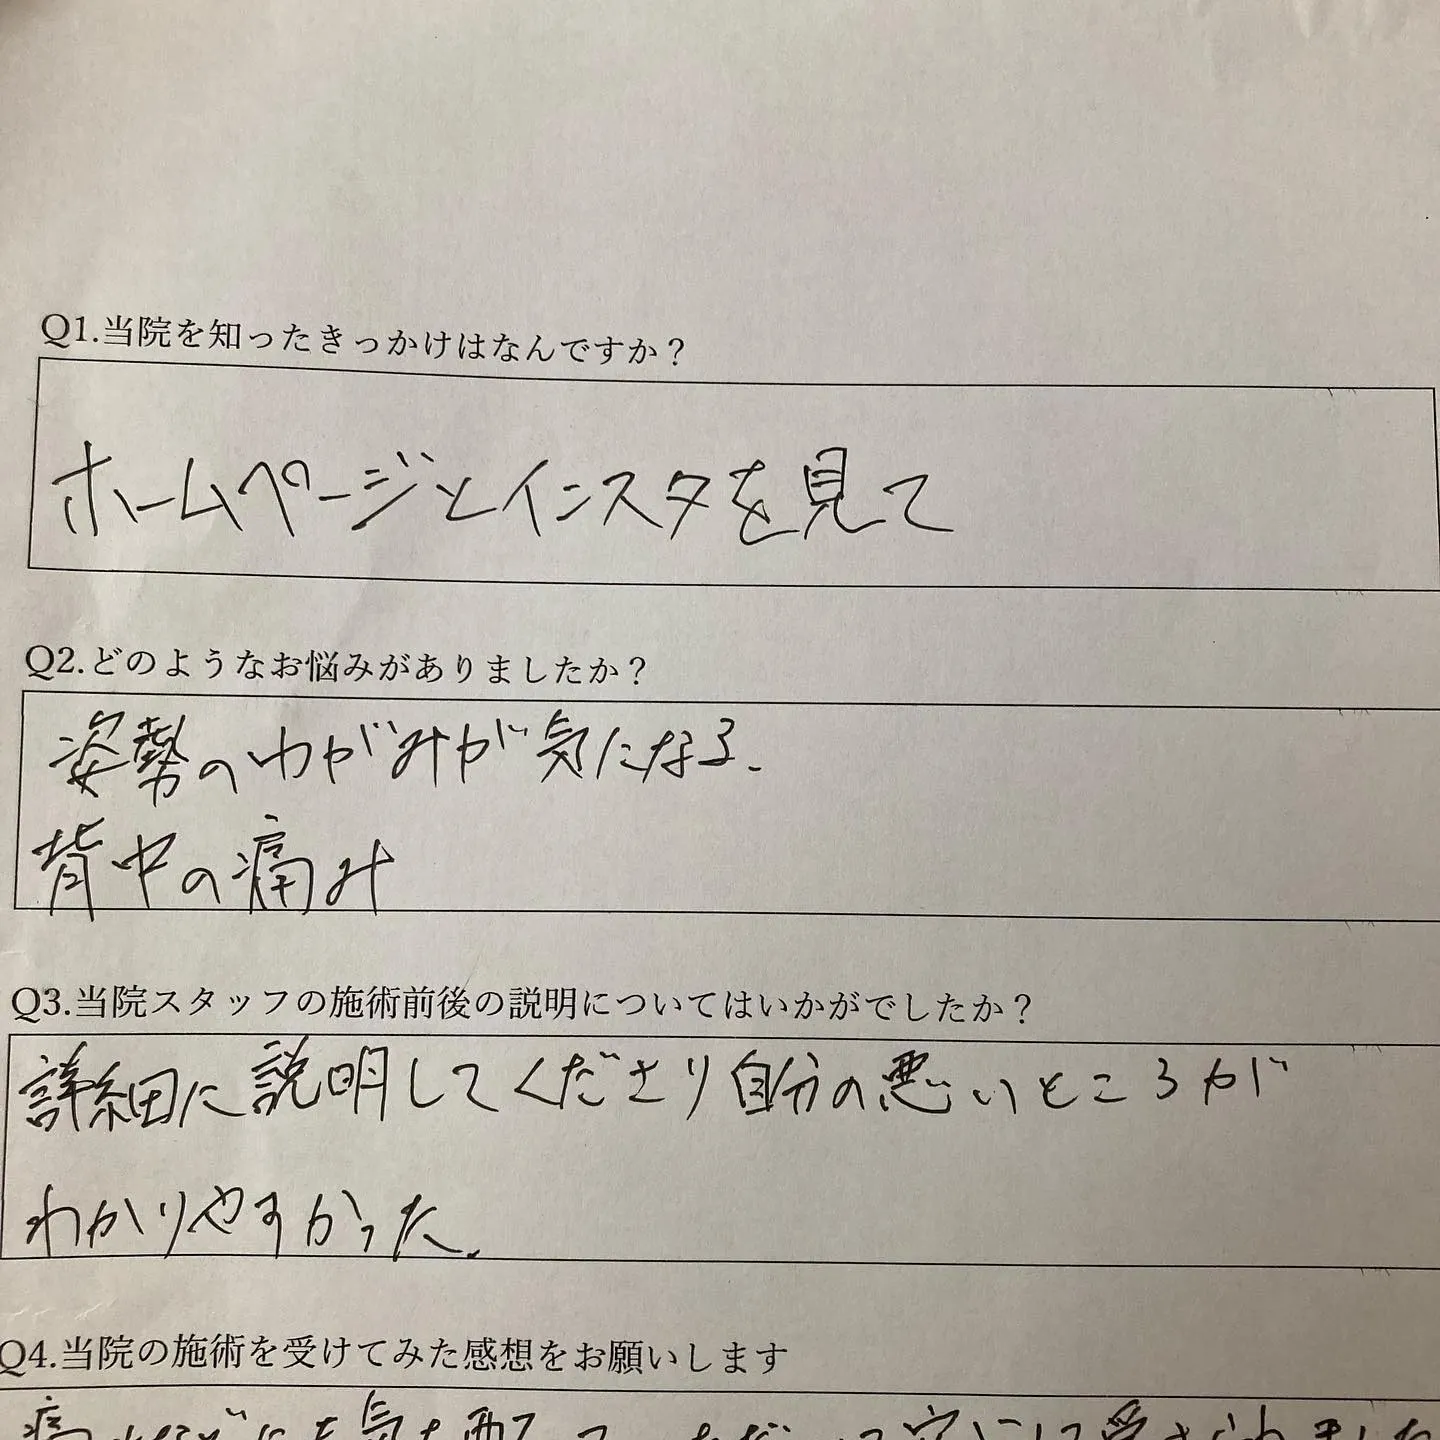 Q1.当院を知ったきっかけはなんですか？
ホームページとインスタを見て
Q2.どのようなお悩みがありましたか？
姿勢のゆがみが気になる.
背中の痛み
Q3.当院スタッフの施術前後の説明についてはいかがでしたか？
詳細に説明してくださり自分の悪いところが
わかりやすかった.
Q4.当院の施術を受けてみた感想をお願いします
痛みなどにも気を配って